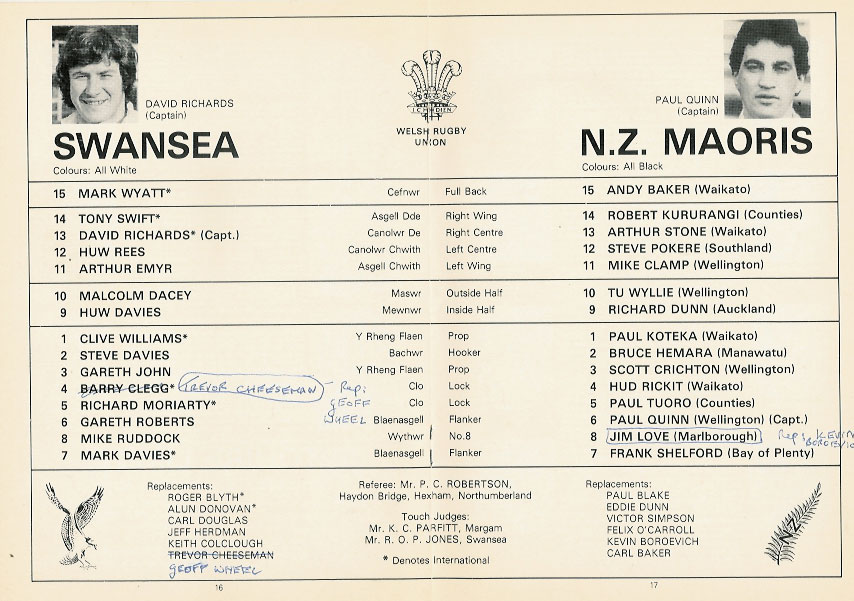 DAVID RICHARDS
(Captain)
SWANSEA
Colours: All White
ICH DIEN
WELSH RUGBY
UNION
PAUL QUINN
(Captain)
N.Z. MAORIS
Colours: All Black
15 MARK WYATT* Cefnwr Full Back 15 ANDY BAKER (Waikato)
14 TONY SWIFT* Asgell Dde Right Wing 14 ROBERT KURURANGI (Counties)
13 DAVID RICHARDS* (Capt.) Canolwr De Right Centre 13 ARTHUR STONE (Waikato)
12 HUW REES Canolwr Chwith Left Centre 12 STEVE POKERE (Southland)
11 ARTHUR EMYR Asgell Chwith Left Wing 11 MIKE CLAMP (Wellington)
10 MALCOLM DACEY Maswr Outside Half 10 TU WYLLIE (Wellington)
9 HUW DAVIES Mewnwr Inside Half 9 RICHARD DUNN (Auckland)
1 CLIVE WILLIAMS* Y Rheng Flaen Prop 1 PAUL KOTEKA (Waikato)
2 STEVE DAVIES Bachwr Hooker 2 BRUCE HEMARA (Manawatu)
3 GARETH JOHN Y Rheng Flaen Prop 3 SCOTT CRICHTON (Wellington)
4 BARRY CLEGG* TREVOR CHEESEMAN - Rep: Clo Lock 4 HUD RICKIT (Waikato)
5 RICHARD MORIARTY* GEOFF Clo Lock 5 PAUL TUORO (Counties)
6 GARETH ROBERTS WHEEL Blaenasgell Flanker 6 PAUL QUINN (Wellington) (Capt.)
8 MIKE RUDDOCK Wythwr No.8 8 JIM LOVE (Marlborough) Rep: KEVIN
BOROEVICH
7 MARK DAVIES* Blaenasgell Flanker 7 FRANK SHELFORD (Bay of Plenty)
Replacements:
ROGER BLYTH*
ALUN DONOVAN*
CARL DOUGLAS
JEFF HERDMAN
KEITH COLCLOUGH
TREVOR CHEESEMAN
GEOFF WHEEL
Referee: Mr. P. C. ROBERTSON,
Haydon Bridge, Hexham, Northumberland
Touch Judges:
Mr. K. C. PARFITT, Margam
Mr. R. O. P. JONES, Swansea
* Denotes International
Replacements:
PAUL BLAKE
EDDIE DUNN
VICTOR SIMPSON
FELIX O'CARROLL
KEVIN BOROEVICH
CARL BAKER
NZ
16
17